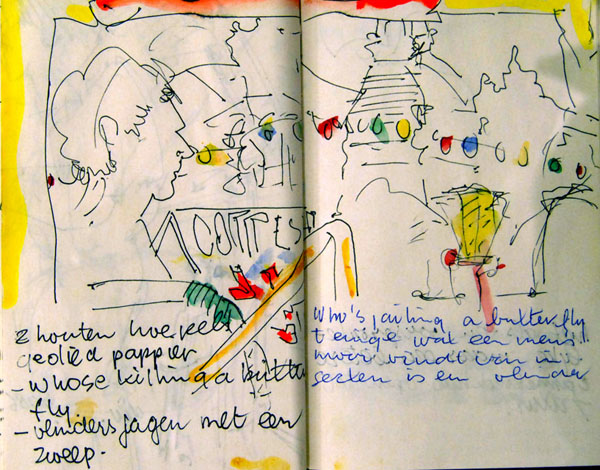 COTTES
2 houten hoekels
geolied pappier
- whose killing a butter
fly.
- vlinders jagen met een
zweep.
Who's jailing a butterfly
't enige wat een mens
mooi vindt van in
secten is een vlinder